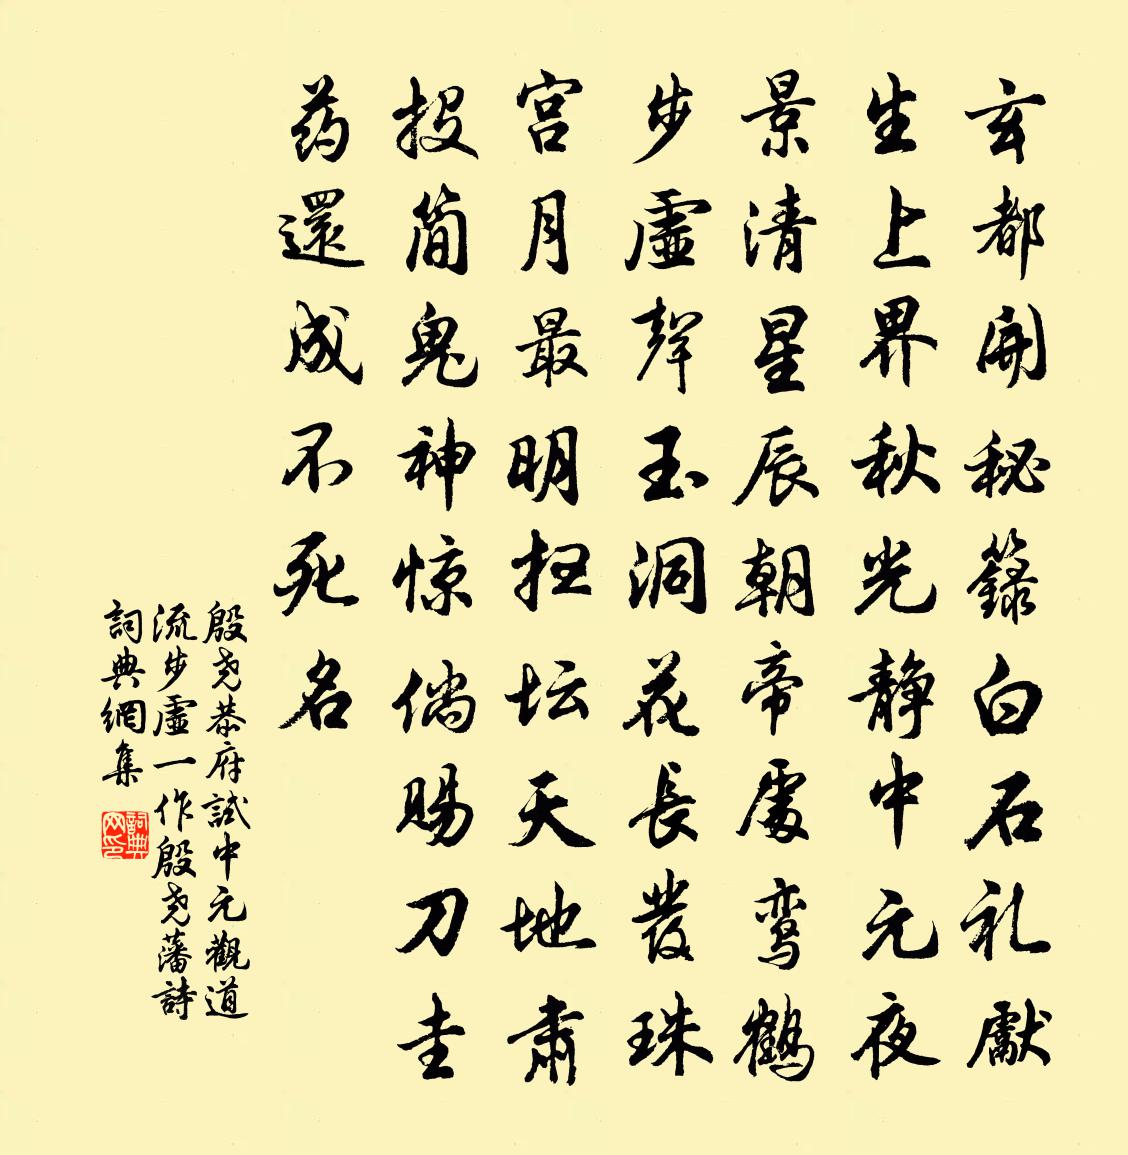 玄都開秘籙白石礼獻
生上界秋光静中元夜
景清星辰朝帝處鸾鹤
步虛聲玉洞花長發珠
宫月最明扫坛天地肅
投简鬼神惊倘賜刀圭
药還成不死名
殷尧恭府試中元觀道
流步虛一作殷尧藩詩
詞典網集
詞典网印